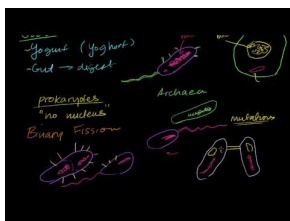 -Yogurt (Yoghurt)
-Gut → digest
prokaryotes
"no nucleus"
Archaea
Binary Fission
mutations